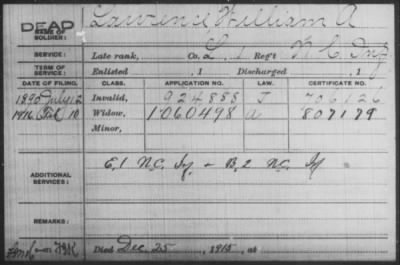 DEAD
NAME OF SOLDIER: Lawrence, William A
SERVICE: Late rank, Co. L, 1 Reg't N. C. Inf
TERM OF SERVICE: Enlisted , 1 Discharged , 1
DATE OF FILING. CLASS. APPLICATION NO. LAW. CERTIFICATE NO.
1890 July 12 Invalid, 924888 J 706126
1916 10 Widow, 1060498 a 807179
Minor,
ADDITIONAL SERVICES: E, 1 N.C. Inf + B, 2 N.C. Inf
REMARKS:
Died Dec. 25, 1915, at